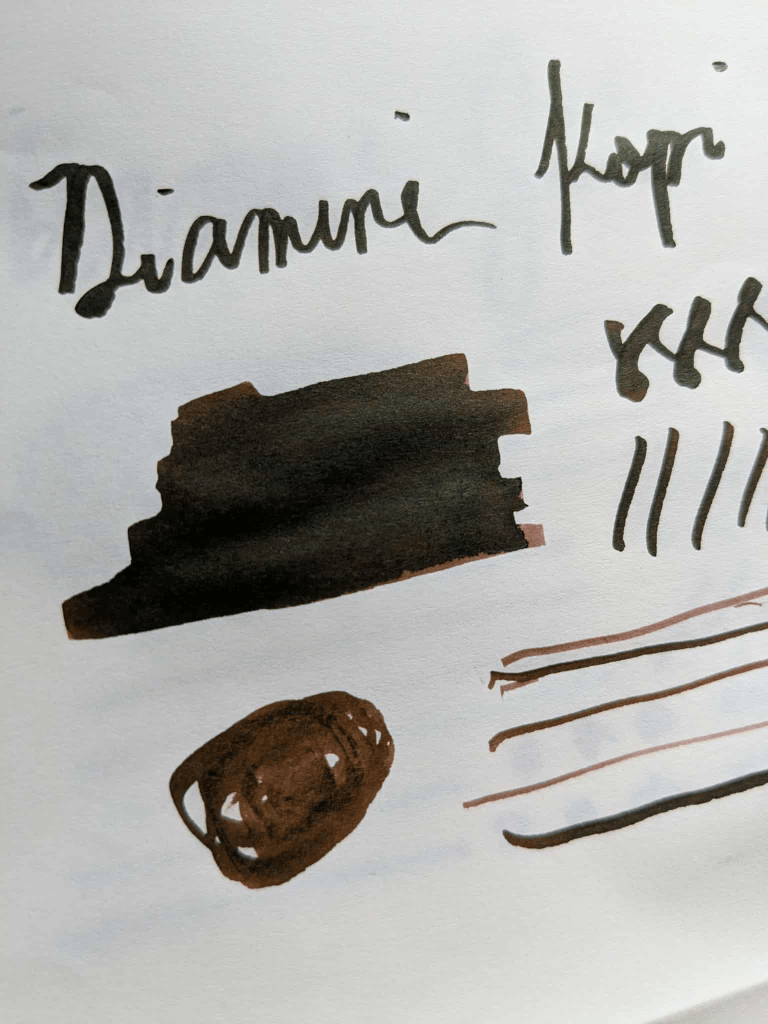 Diamine Kopi